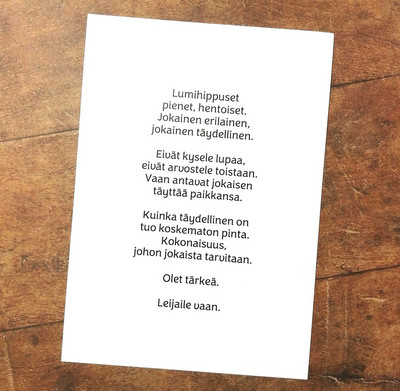 Lumihippuset
pienet, hentoiset.
Jokainen erilainen,
jokainen täydellinen.
Eivät kysele lupaa,
eivät arvostele toistaan.
Vaan antavat jokaisen
täyttää paikkansa.
Kuinka täydellinen on
tuo koskematon pinta.
Kokonaisuus,
johon jokaista tarvitaan.
Olet tärkeä.
Leijaile vaan.